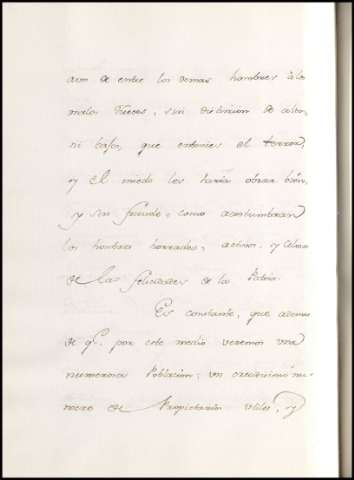 de entre los demas hombres à los
malos Jueces, sin distincion de altos,
ni bajos, que entonces el terror,
y el miedo les haria obrar bien,
y sin fraude, como acostumbran
los hombres honrados, activos, y
de las felicidades de la Patria.
Es constante, que ademas
de q.e por este medio veremos una
numerosa Poblacion; un crecidisimo nu-
mero de Propietarios utiles, y